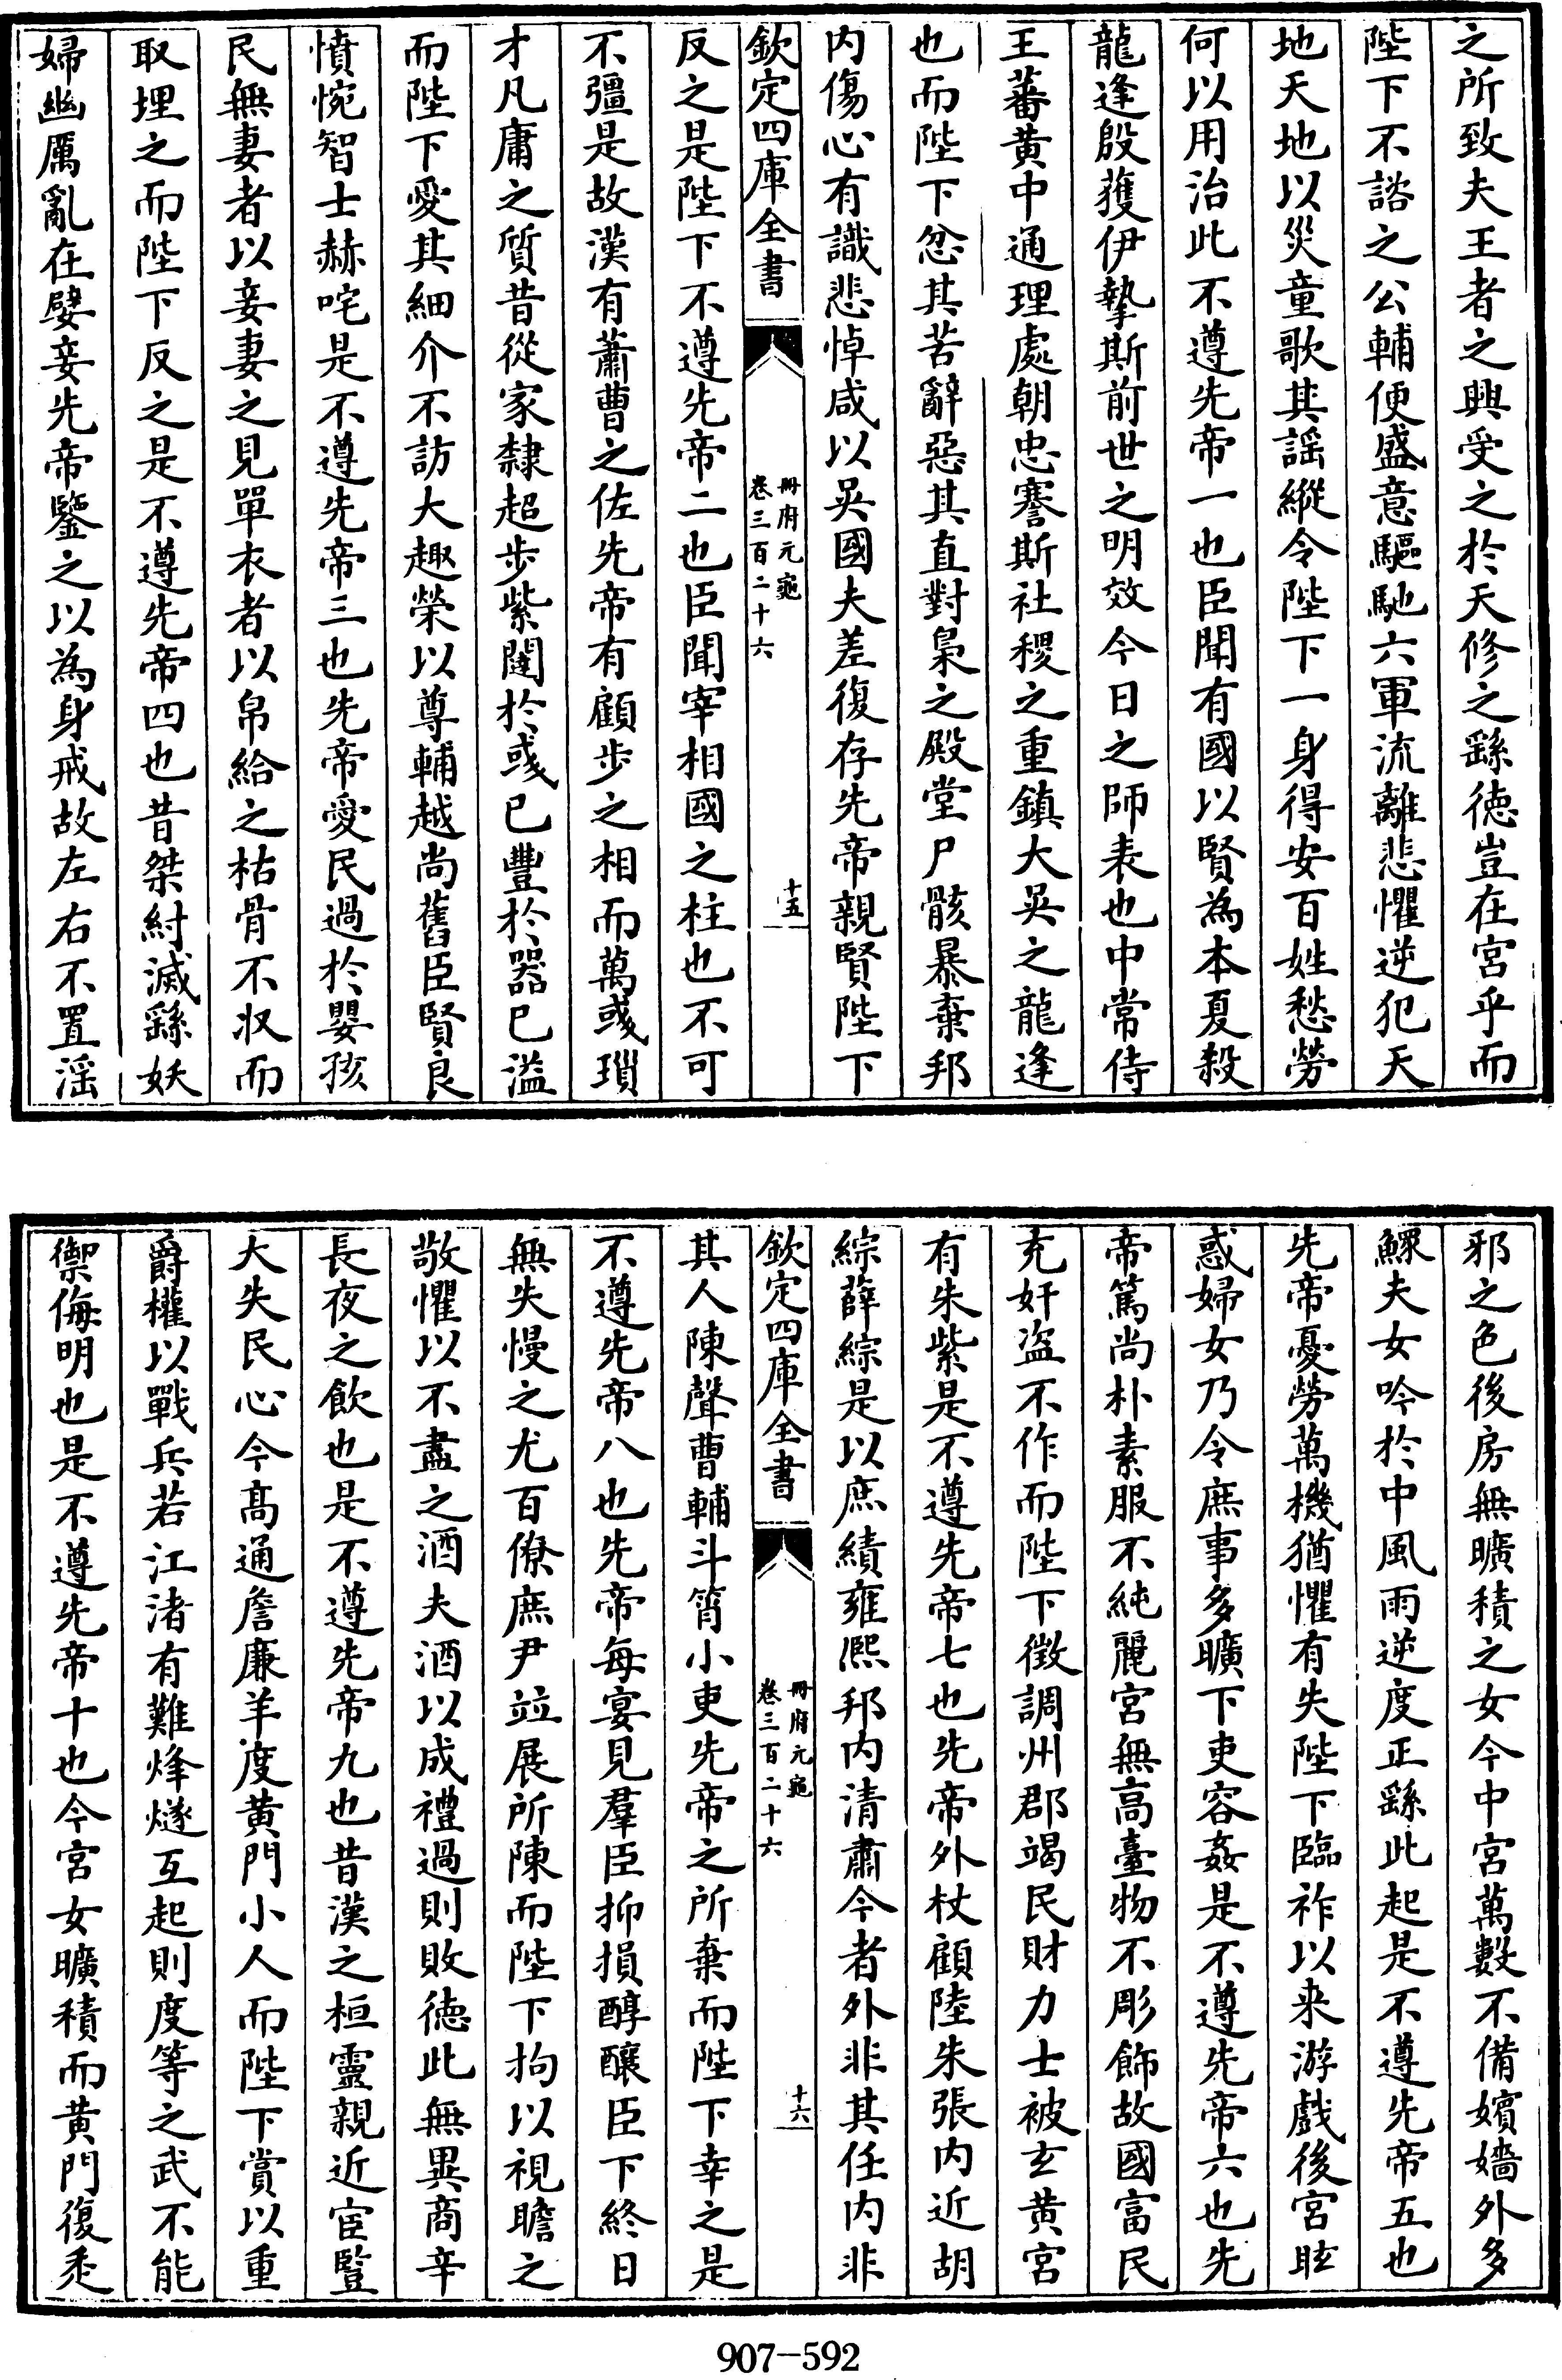 之所致夫王者之興受之於天修之繇德豈在宮乎而
陛下不諮之公輔便盛意驅馳六軍流離悲懼逆犯天
地天地以災童歌其謡縱令陛下一身得安百姓愁勞
何以用治此不遵先帝一也臣聞有國以賢為本夏殺
龍逢殷獲伊摯斯前世之明效今日之師表也中常侍
王蕃黄中通理處朝忠謇斯社稷之重鎮大吳之龍逢
也而陛下忿其苦辭惡其直對梟之殿堂尸骸暴棄邦
内傷心有識悲悼咸以吳國夫差復存先帝親賢陛下
欽定四庫全書
冊府元龜
卷三百二十六
十五
反之是陛下不遵先帝二也臣聞宰相國之柱也不可
不彊是故漢有蕭曹之佐先帝有顧步之相而萬彧瑣
才凡庸之質昔從家隸超步紫闥於彧已豐於器已溢
而陛下愛其細介不訪大趣榮以尊輔越尚舊臣賢良
憤惋智士赫咤是不遵先帝三也先帝愛民過於嬰孩
民無妻者以妾妻之見單衣者以帛給之枯骨不收而
取埋之而陛下反之是不遵先帝四也昔桀紂滅繇妖
婦幽厲亂在嬖妾先帝鑒之以為身戒故左右不置滛
邪之色後房無曠積之女今中宮萬數不備嬪嬙外多
鰥夫女吟於中風雨逆度正繇此起是不遵先帝五也
先帝憂勞萬機猶懼有失陛下臨祚以来游戲後宮眩
惑婦女乃令庶事多曠下吏容姦是不遵先帝六也先
帝篤尚朴素服不純麗宮無高臺物不彫飾故國富民
充奸盜不作而陛下徴調州郡竭民財力士被玄黄宮
有朱紫是不遵先帝七也先帝外杖顧陸朱張内近胡
綜薛綜是以庶績雍熙邦内清肅今者外非其任内非
欽定四庫全書
冊府元龜
卷三百二十六
十六
其人陳聲曹輔斗筲小吏先帝之所棄而陛下幸之是
不遵先帝八也先帝每宴見羣臣抑損醇醲臣下終日
無失慢之尤百僚庶尹竝展所陳而陛下拘以視瞻之
敬懼以不盡之酒夫酒以成禮過則敗德此無異商辛
長夜之飲也是不遵先帝九也昔漢之桓靈親近宦豎
大失民心今髙通詹廉羊度黄門小人而陛下賞以重
爵權以戰兵若江渚有難烽燧互起則度等之武不能
禦侮明也是不遵先帝十也今宮女曠積而黄門復走
907-592